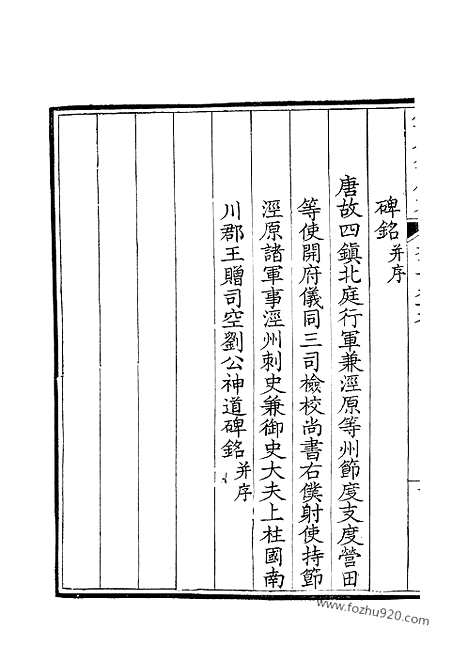 碑銘并序
唐故四鎮北庭行軍兼涇原等州節度支度營田
等使開府儀同三司檢校尚書右僕射使持節
涇原諸軍事涇州刺史兼御史大夫上柱國南
川郡王贈司空劉公神道碑銘并序
www.fozhu920.com